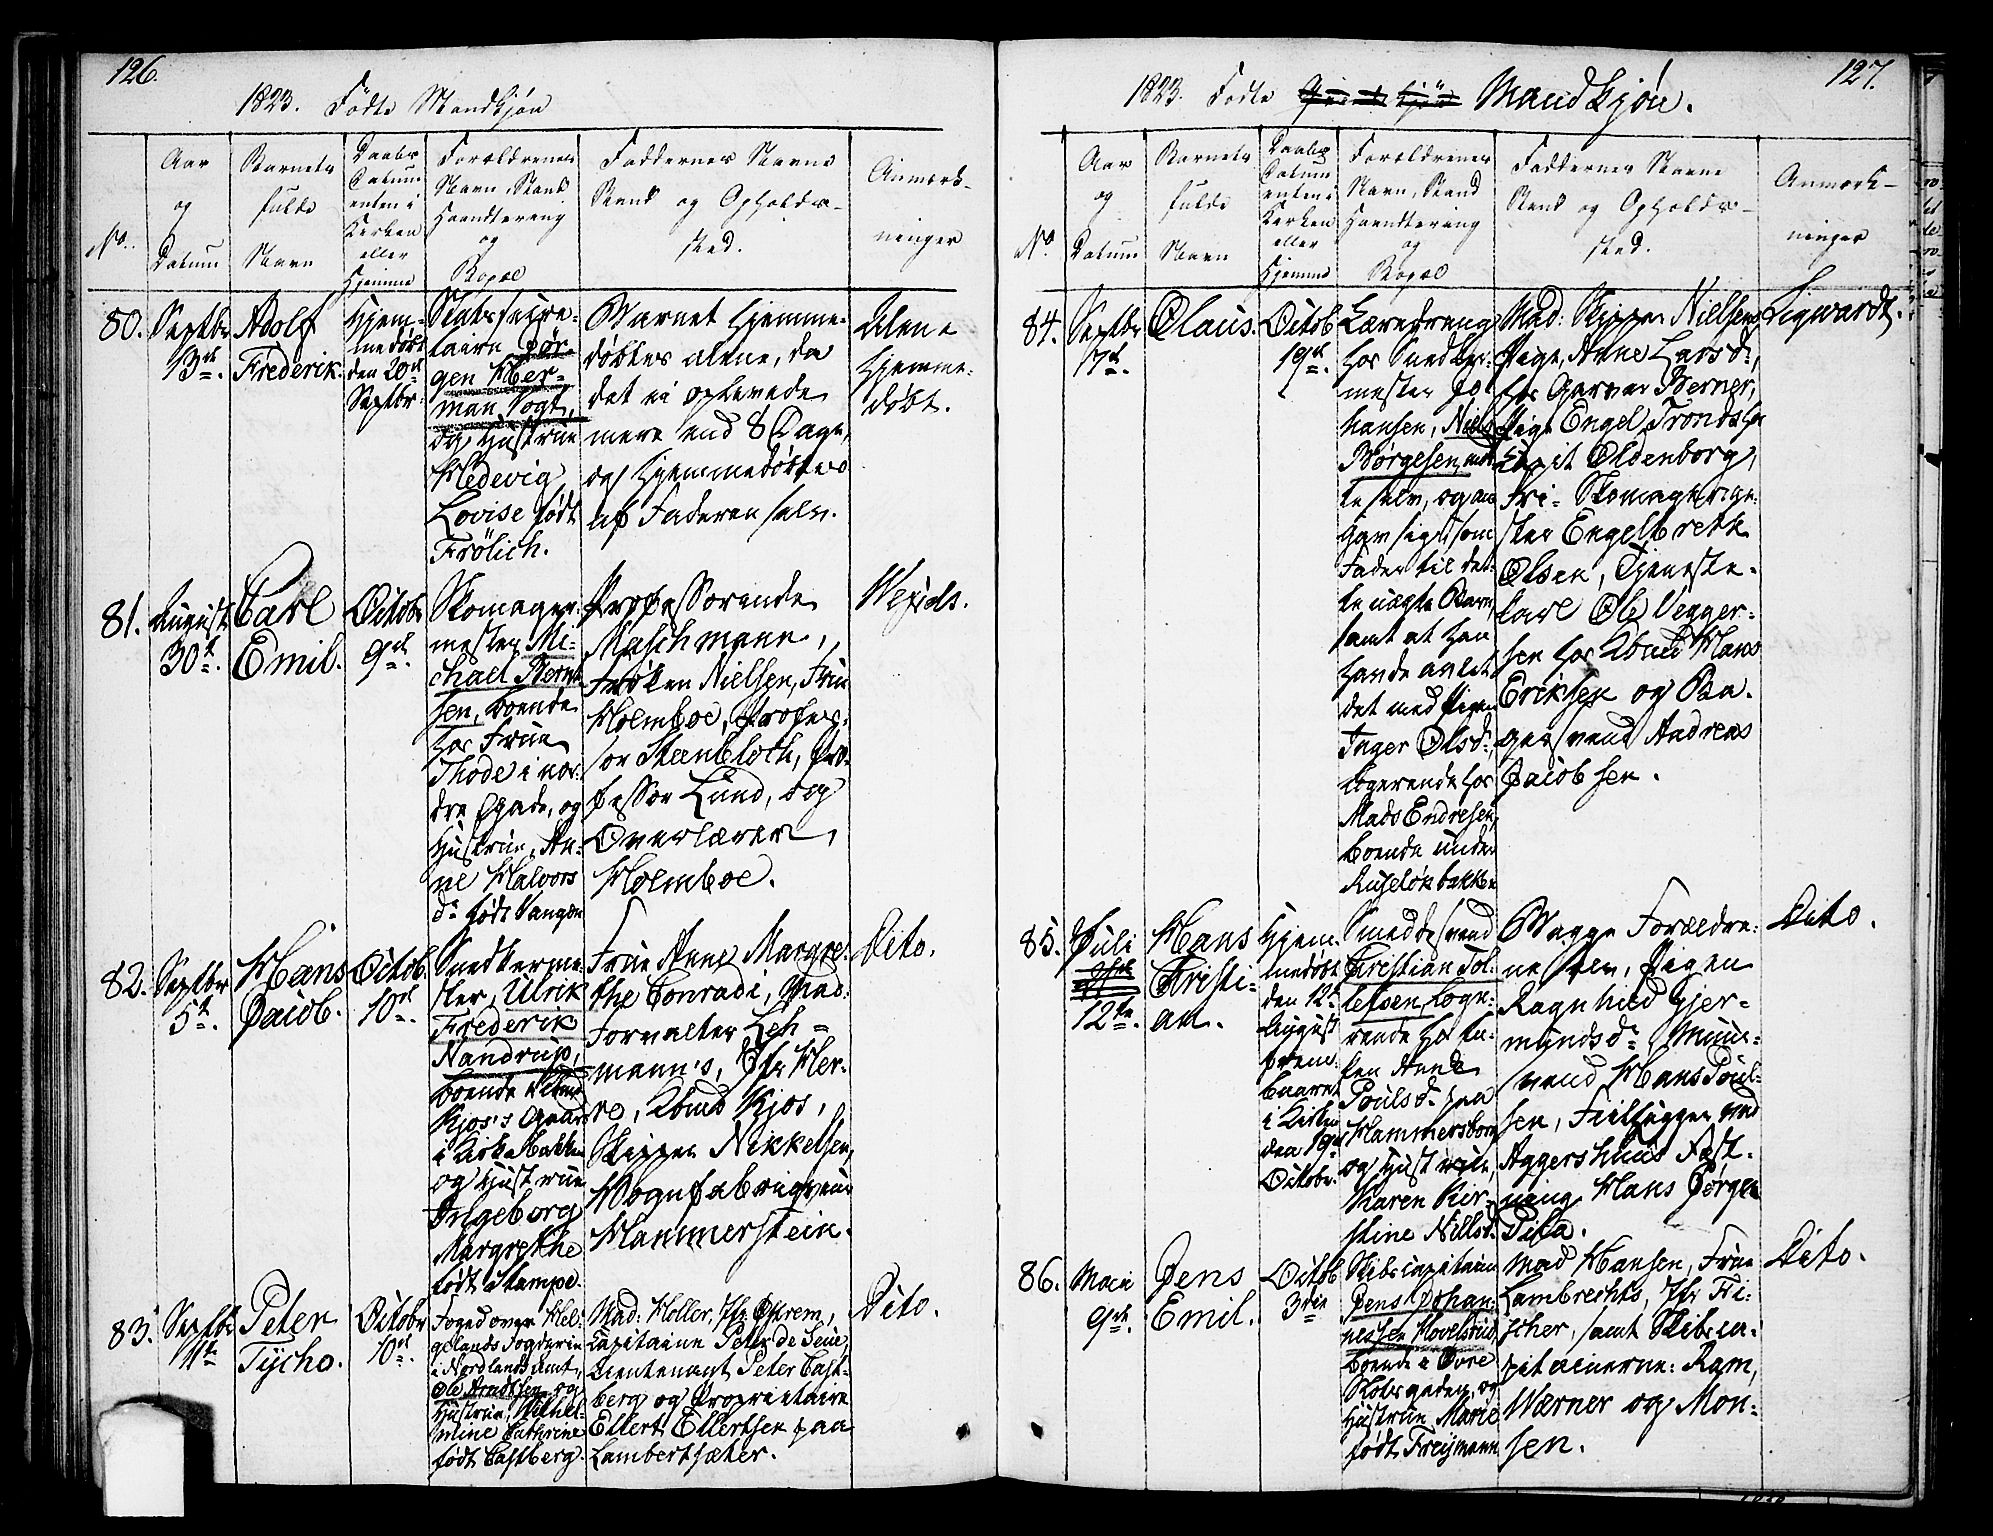 126.
1823. Fødte Mandkjøn
No.
Aar
og
Datum
Barnets
fulde
Navn
Daabs
Datum
enten i
Kirken
eller
Hjemme
Forældrenes
Navn, Stand
Haandtering
og
Bopæl
Faddernes Navne
Stand og Opholds-
sted.
Anmærk-
ninger
80.
Septbr
13de.
Adolf
Frederik.
Hjem-
medøbt
den 20de
Septbr.
Statssecre-
tairn Jør-
gen Her-
man Vogt,
og Hustrue
Hedevig
Lovise født
Frölich.
Barnet hjemme-
døbtes alene, da
det ei oplevede
mere end 8 Dage,
og hjemmedøbtes
af Faderen selv.
Alene
hjemme-
døbt.
81.
August
30te.
Carl
Emil.
Octobr
9de.
Skomager-
mester Mi-
chael Bernt-
sen, boende
hos Frue
Thode i nor-
dre Gade, og
Hustrue, An-
ne Halvors
dr født Vangen
Professorinde
Maschmann,
Frøken Nielsen, Frue
Holmboe, Profes-
sor Steenbloch, Pro-
fessor Lund, og
Overlærer
Holmboe.
Wejds.
82.
Septbr
5te.
Hans
Jacob.
Octob.
10de.
Snedkerme-
ster, Ulrik
Frederik
Nandrup,
boende i Kbmd
Kjos's Gaard
i Kirke Bakken
og Hustrue
Ingeborg
Margrethe
født Stampe.
Frue Anne Margre-
the Conradi, Mad:
Forvalter Leh-
mann's, Jfr Her-
re, Kbmd Kjos,
Skipper Nikkelsen,
Vognfabriqveur
Hammerstein.
Dito.
83.
Septbr
11te
Peter
Tycho.
Octobr
10de.
Foged over Hel-
gelands Fogderie
i Nordlands Amt,
Ole Arndtsen og
Hustrue, Wilhel-
mine Cathrine
født Castberg.
Mad: Holler, Jfr Østrem,
Capitaine Peter de Seue,
Lieutenant Peter Cast-
berg og Proprietaire
Ellert Ellertsen paa
Lambertsæter.
Dito.
127.
1823. Fødte Mandkjøn.
No.
Aar
og
Datum
Barnets
fulde
Navn
Daabs
Datum
enten i
Kirken
eller
Hjemme
Forældrenes
Navn, Stand
Haandtering
og
Bopæl
Faddernes Navne
Stand og Opholds-
sted.
Anmærk-
ninger
84.
Septbr
17de.
Olaus.
Octob
19de.
Læredreng
hos Snedker-
mester Jo-
hansen, Niels
Børgesen, mød-
te selv, og an-
gav sig som
Fader til det-
te uægte Barn,
samt at han
havde avlet
det med Pigen
Inger Olsdr,
logerende hos
Mads Endresen,
boende under
Ruseløkbakken
Mad: Skipper Nielsen,
Pige, Anne Larsdr,
hos Garver Berner,
Pige Engel Trondsdr
Capit Oldenborg,
Fri- Skomagerme-
ster Engelbrett
Olsen, Tjeneste-
karl Ole Vegger-
sen hos Kbmd Hans
Eriksen og Ba-
gersvend Andreas
Jacobsen.
Sigwardt.
85.
Juli
12te.
Hans
Christi-
an.
Hjem-
medøbt
den 12te
August
frem-
baaret
i Kirken
den 19de
Octobr.
Smeddesvend
Christian Tol-
lefsen, loge-
rende hos En-
ken Anne
Poulsdr paa
Hammersborg
og Hustrue,
Karen Kir-
stine Nielsdr.
Begge Forældre-
ne selv, Pigen
Ragnhild Gjer-
mundsdr Muur-
svend Hans Poul-
sen, Fiilhugger ved
Aggershuus Fæst-
ning Hans Jørgen
Pihla.
Dito.
86.
Maii
9de.
Jens
Emil.
Octob
3die
Skibscapitaine
Jens Johan-
nessen Hovelsrud
boende i Øvre
Slotsgaden, og
Hustrue Marie
født Freymann
Mad Hansen, Frue
Lambrechts, Jfr Fi-
scher, samt Skibsca-
pitainerne: Ram,
Wærner og Mon-
sen.
Dito.